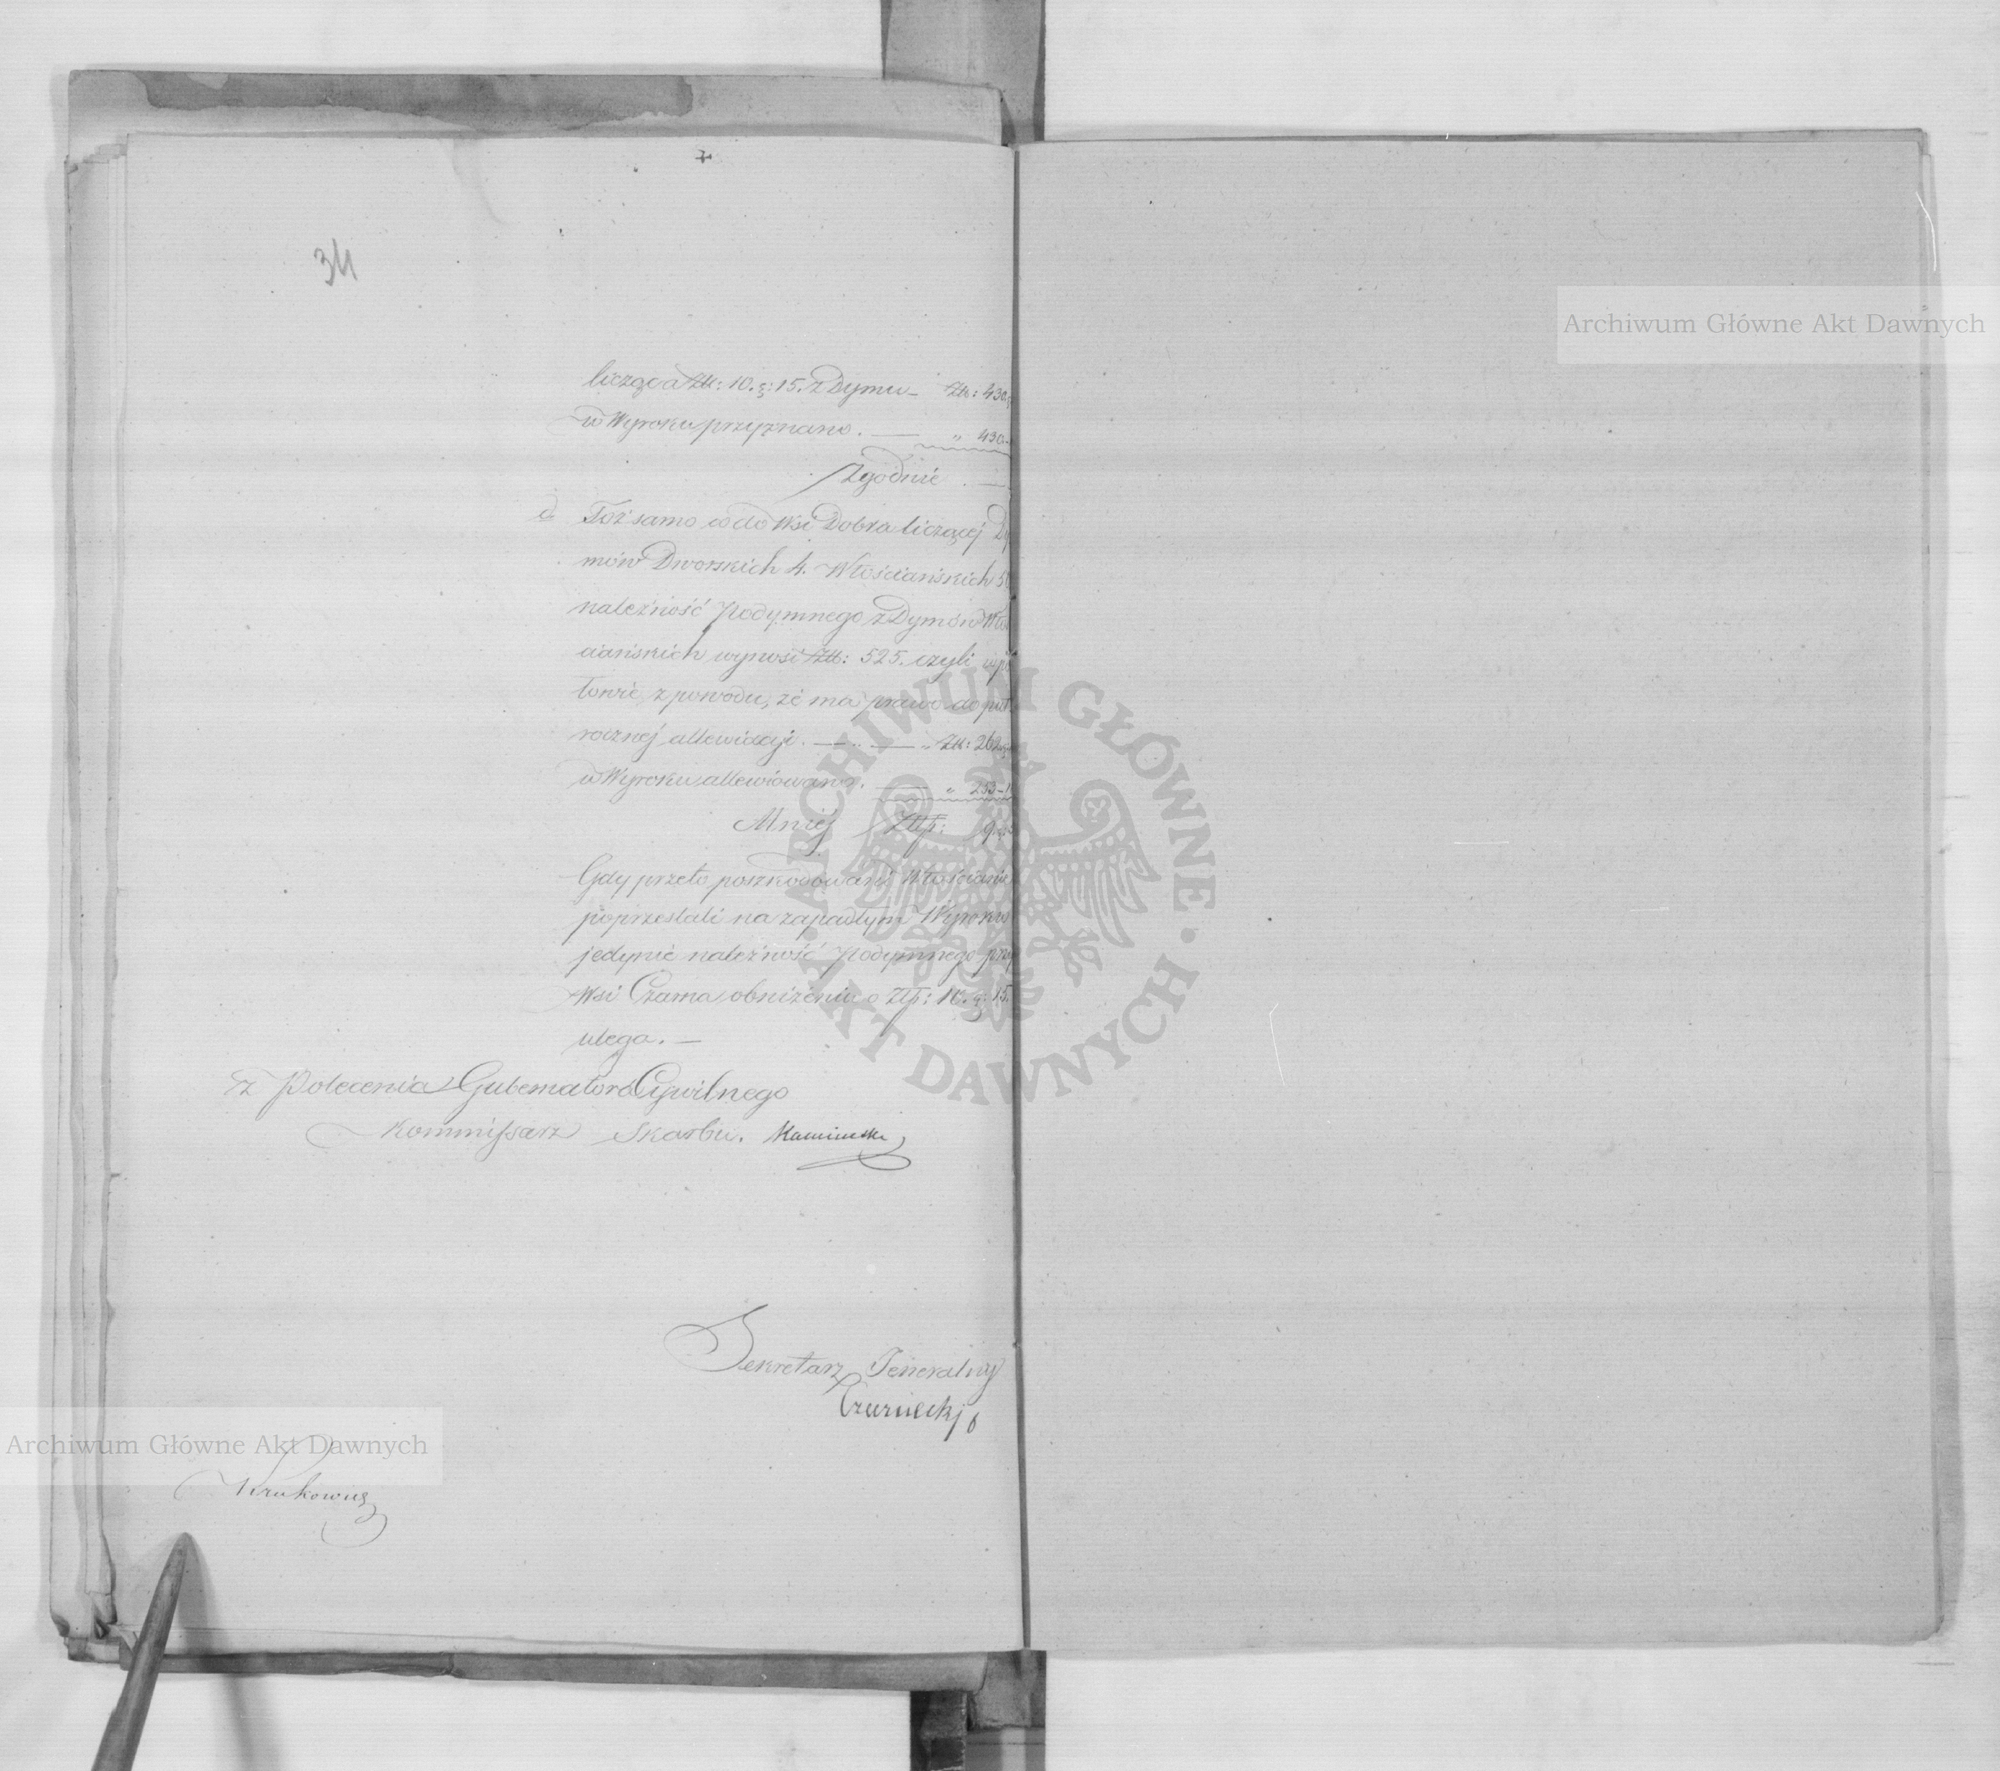 34
licząc a Złt: 10. g: 15. z Dymu — Złt: 430. g
w Wyroku przyznano. — „ 430.
Zgodnie . —
d. Toż samo co do Wsi Dobra liczącej Dy
mów Dworskich 4. Włościańskich 50
należność Podymnego z Dymów Włoś
ciańskich wynosi Złt: 525. czyli w po
łowie, z powodu, że ma prawo do puł
rocznej allewiacyi. — „ — „ Złt: 262
w Wyroku allewiowano. — „ 253 - 1
Mniej Złp: 9. g:
Gdy przeto poszkodowani Włościanie
poprzestali na zapadłym Wyroku
jedynie należność Podymnego przy
Wsi Czarna obniżeniu o Złp: 10. g: 15.
ulega. —
z Polecenia Gubernatora Cywilnego
Kommissarz Skarbu. Kamiński
Sekretarz Jeneralny
Czarnecki
Krukowicz
Archiwum Główne Akt Dawnych
Archiwum Główne Akt Dawnych
ARCHIWUM GŁÓWNE · AKT DAWNYCH ·